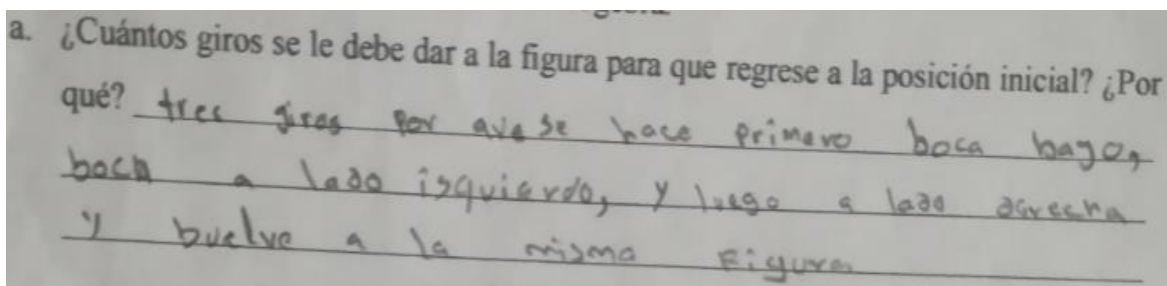 a. ¿Cuántos giros se le debe dar a la figura para que regrese a la posición inicial? ¿Por
qué? tres giros por que se hace primero boca bajo,
boca a lado isquierdo, y luego a lado derecha
y buelve a la misma Figura